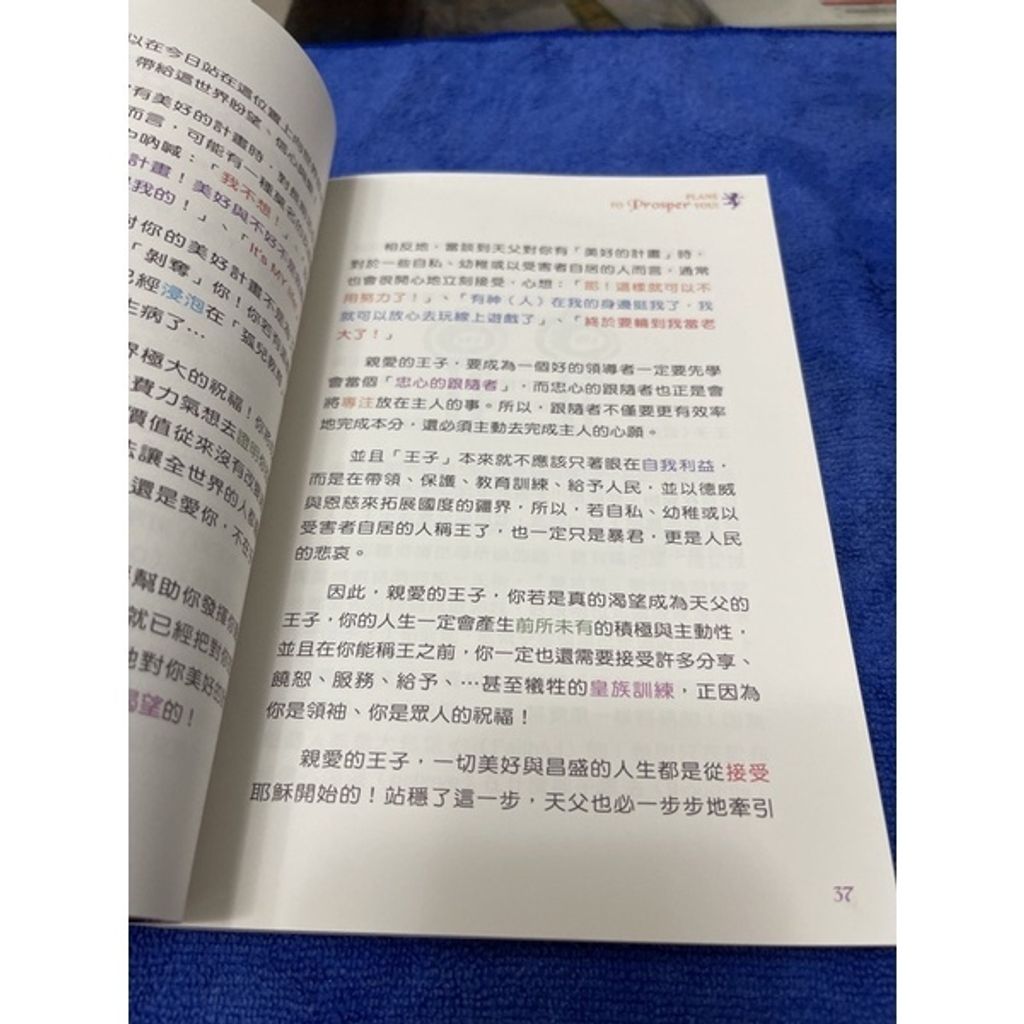 以在今日站在這位置上
帶給這世界盼望、信心與
有美好的計畫時，對
而言，可能有一種莫名的
吶喊：「我不想！」
計畫！美好與不好不
我的！」、「It's MY
對你的美好計畫不是
「剝奪」你！你若有
已經浸泡在「孤兒
生病了…
界極大的祝福！
費力氣想去證明
價值從來沒有改
去讓全世界的人都
還是愛你，不在
幫助你發揮
就已經把對你
他對你美好的
渴望的！
PLANS
TO Prosper YOU!
相反地，當談到天父對你有「美好的計畫」時，
對於一些自私、幼稚或以受害者自居的人而言，通常
也會很開心地立刻接受，心想：「耶！這樣就可以不
用努力了！」、「有神（人）在我的身邊挺我了，我
就可以放心去玩線上遊戲了」、「終於要輪到我當老
大了！」
親愛的王子，要成為一個好的領導者一定要先學
會當個「忠心的跟隨者」，而忠心的跟隨者也正是會
將專注放在主人的事。所以，跟隨者不僅要更有效率
地完成本分，還必須主動去完成主人的心願。
並且「王子」本來就不應該只著眼在自我利益，
而是在帶領、保護、教育訓練、給予人民，並以德威
與恩慈來拓展國度的疆界，所以，若自私、幼稚或以
受害者自居的人稱王了，也一定只是暴君，更是人民
的悲哀。
因此，親愛的王子，你若是真的渴望成為天父的
王子，你的人生一定會產生前所未有的積極與主動性，
並且在你能稱王之前，你一定也還需要接受許多分享、
饒恕、服務、給予、…甚至犧牲的皇族訓練，正因為
你是領袖、你是眾人的祝福！
親愛的王子，一切美好與昌盛的人生都是從接受
耶穌開始的！站穩了這一步，天父也必一步步地牽引
37